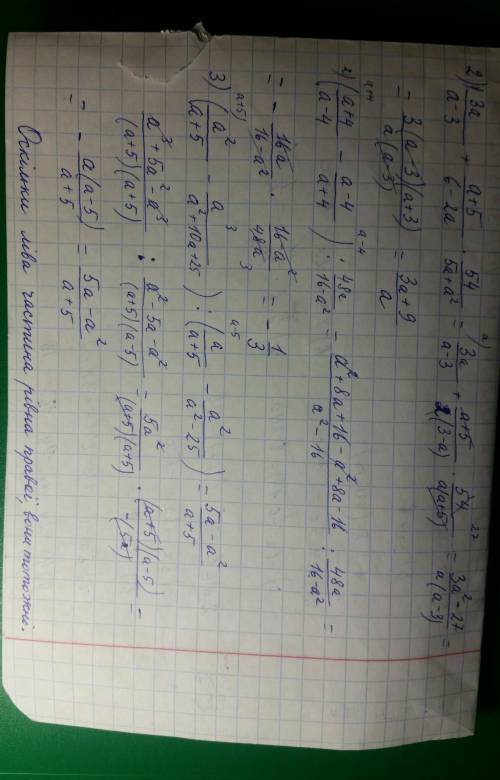 2) 3a/(a-3) + (a+5)/(6-2a) · 54/(5a+a²) = 3a/(a-3) + (a+5)/(2(3-a)) · 54 27/(a(a+5)) = (3a²-27)/(a(a-3)) =
= 3(a-3)(a+3)/(a(a-3)) = (3a+9)/a
4) ((a+4)/(a-4) - (a-4)/(a+4)) : 48a/(16-a²) = (a²+8a+16-a²+8a-16)/(a²-16) : 48a/(16-a²) =
= - 16a/(16-a²) · (16-a²)/(48a) 3 = - 1/3
3) (a²/(a+5) - a³/(a²+10a+25)) : (a/(a+5) - a²/(a²-25)) = (5a-a²)/(a+5)
(a³+5a²-a³)/((a+5)(a+5)) : (a²-5a-a²)/((a+5)(a-5)) = 5a²/((a+5)(a+5)) · (a+5)(a-5)/(-(5a)) =
= - a(a-5)/(a+5) = (5a-a²)/(a+5)
Оскільки ліва частина рівна правій, вона тотожні.